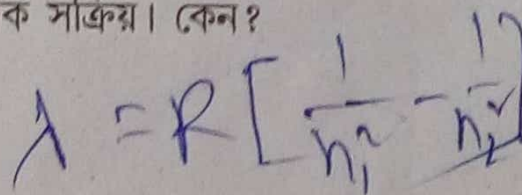 ক সক্রিয়। কেন?
λ = R [ 1/n₁² − 1/n₂² ]